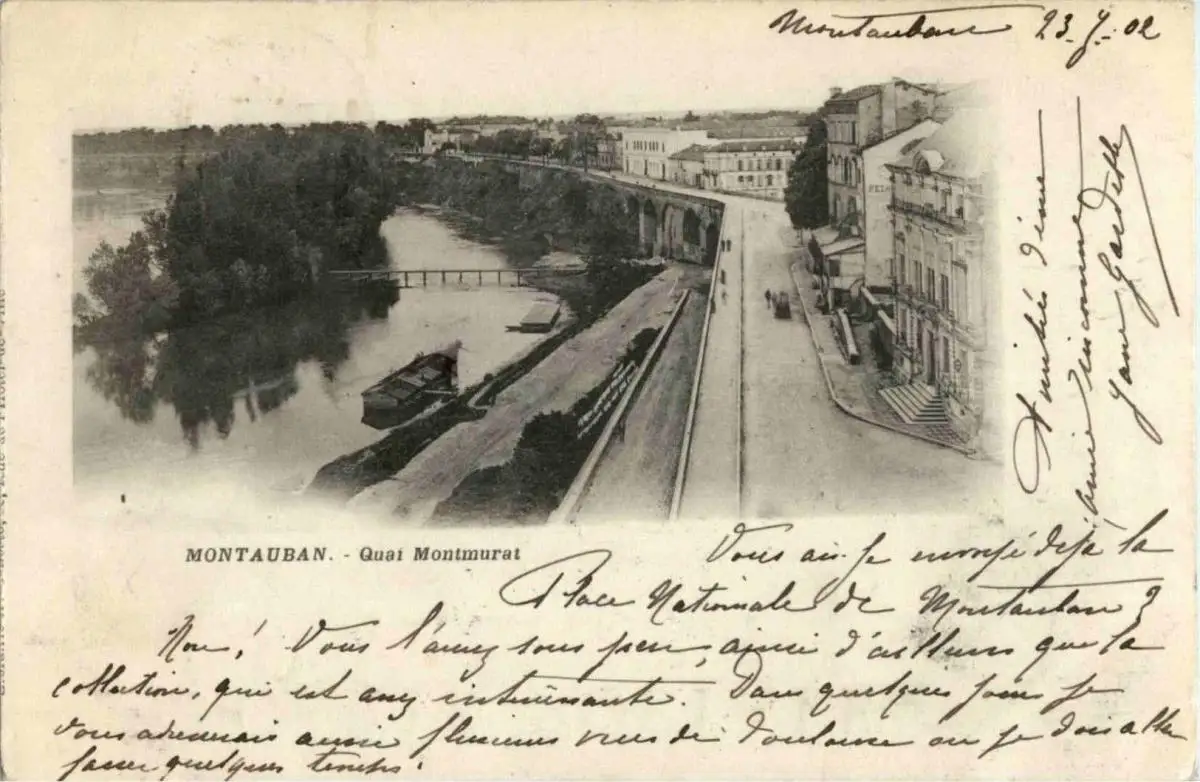 Montauban 23-7-02
MONTAUBAN. - Quai Montmurat
Vous ai-je envoyé déjà la
Place Nationale de Montauban ?
Non! Vous l'aurez sous peu, ainsi d'ailleurs que la
collection, qui est assez intéressante. Dans quelques jours je
vous adresserais aussi plusieurs vues de Toulouse où je dois aller
passer quelques temps.
Amitiés d'une
amie inconnue